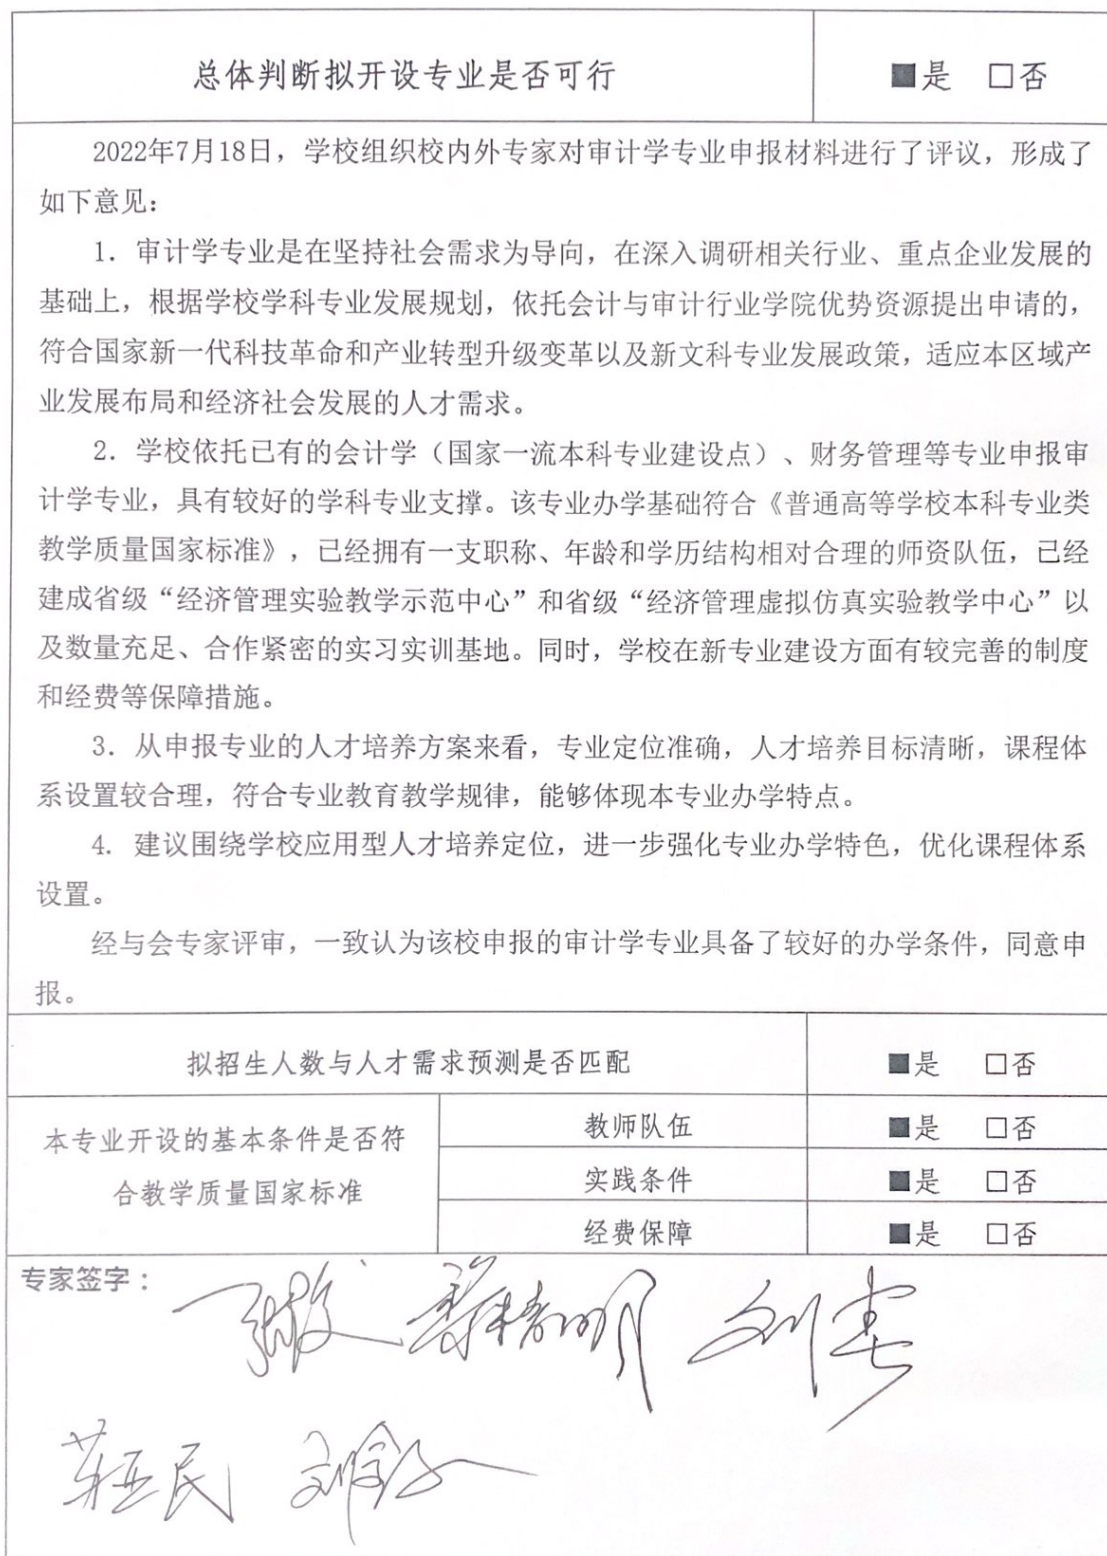 总体判断拟开设专业是否可行 ■是 □否
2022年7月18日，学校组织校内外专家对审计学专业申报材料进行了评议，形成了
如下意见：
1. 审计学专业是在坚持社会需求为导向，在深入调研相关行业、重点企业发展的
基础上，根据学校学科专业发展规划，依托会计与审计行业学院优势资源提出申请的，
符合国家新一代科技革命和产业转型升级变革以及新文科专业发展政策，适应本区域产
业发展布局和经济社会发展的人才需求。
2. 学校依托已有的会计学（国家一流本科专业建设点）、财务管理等专业申报审
计学专业，具有较好的学科专业支撑。该专业办学基础符合《普通高等学校本科专业类
教学质量国家标准》，已经拥有一支职称、年龄和学历结构相对合理的师资队伍，已经
建成省级“经济管理实验教学示范中心”和省级“经济管理虚拟仿真实验教学中心”以
及数量充足、合作紧密的实习实训基地。同时，学校在新专业建设方面有较完善的制度
和经费等保障措施。
3. 从申报专业的人才培养方案来看，专业定位准确，人才培养目标清晰，课程体
系设置较合理，符合专业教育教学规律，能够体现本专业办学特点。
4. 建议围绕学校应用型人才培养定位，进一步强化专业办学特色，优化课程体系
设置。
经与会专家评审，一致认为该校申报的审计学专业具备了较好的办学条件，同意申
报。
拟招生人数与人才需求预测是否匹配 ■是 □否
本专业开设的基本条件是否符
合教学质量国家标准
教师队伍 ■是 □否
实践条件 ■是 □否
经费保障 ■是 □否
专家签字：